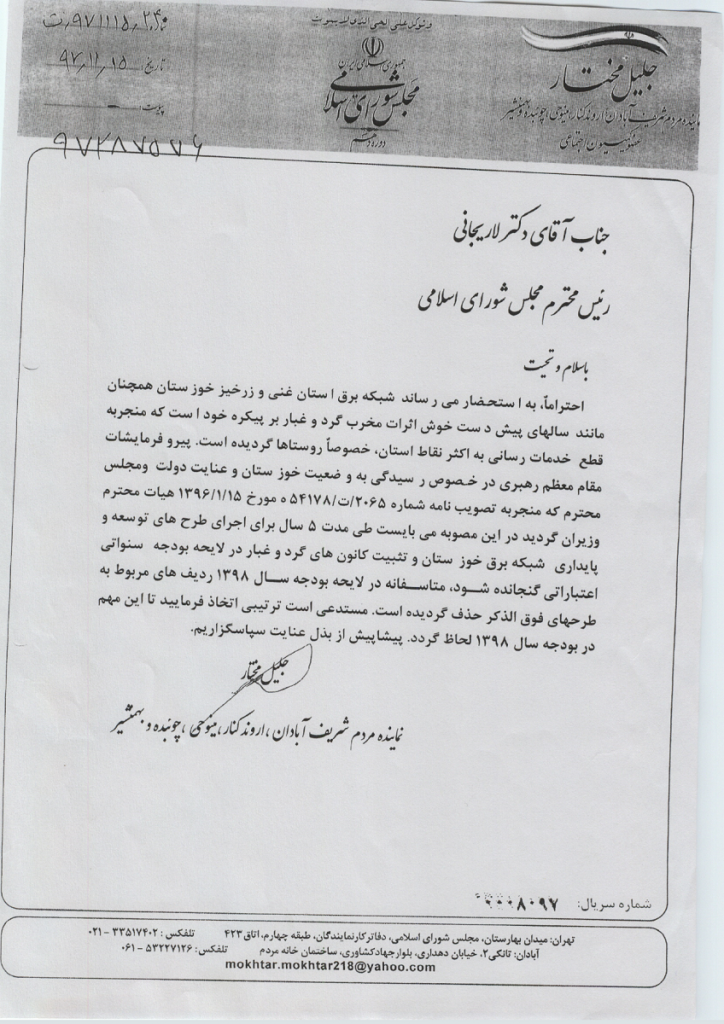 وتوکل علی الحی الذی لا یموت
جمهوری اسلامی ایران
مجلس شورای اسلامی
دوره دهم
جلیل مختار
نماینده مردم شریف آبادان، اروندکنار، مینوحی، چوئبده و بهمنشیر
عضو کمیسیون اجتماعی
تاریخ: ۹۷،۱۱،۱۵
پیوست: ــ
۹۷۲۸۷۵۷۶
جناب آقای دکتر لاریجانی
رئیس محترم مجلس شورای اسلامی
باسلام و تحیت
احتراماً، به استحضار می رساند شبکه برق استان غنی و زرخیز خوزستان همچنان
مانند سالهای پیش دست خوش اثرات مخرب گرد و غبار بر پیکره خود است که منجربه
قطع خدمات رسانی به اکثر نقاط استان، خصوصاً روستاها گردیده است. پیرو فرمایشات
مقام معظم رهبری در خصوص رسیدگی به وضعیت خوزستان و عنایت دولت ومجلس
محترم که منجربه تصویب نامه شماره ۲۰۶۵/ت/۵۴۱۷۸ ه مورخ ۱۳۹۶/۱/۱۵ هیات محترم
وزیران گردید در این مصوبه می بایست طی مدت ۵ سال برای اجرای طرح های توسعه و
پایداری شبکه برق خوزستان و تثبیت کانون های گرد و غبار در لایحه بودجه سنواتی
اعتباراتی گنجانده شود، متاسفانه در لایحه بودجه سال ۱۳۹۸ ردیف های مربوط به
طرحهای فوق الذکر حذف گردیده است. مستدعی است ترتیبی اتخاذ فرمایید تا این مهم
در بودجه سال ۱۳۹۸ لحاظ گردد. پیشاپیش از بذل عنایت سپاسگزاریم.
جلیل مختار
نماینده مردم شریف آبادان، اروندکنار، مینوحی، چوئبده و بهمنشیر
شماره سریال: ۰۰۰۸۰۹۷
تهران: میدان بهارستان، مجلس شورای اسلامی، دفاتر کارنمایندگان، طبقه چهارم، اتاق ۴۲۳ تلفکس: ۳۳۵۱۷۴۰۲ - ۰۲۱
آبادان: تانکی۲، خیابان دهداری، بلوار جهادکشاورزی، ساختمان خانه مردم تلفکس: ۵۳۲۲۷۱۲۶ - ۰۶۱
mokhtar.mokhtar218@yahoo.com